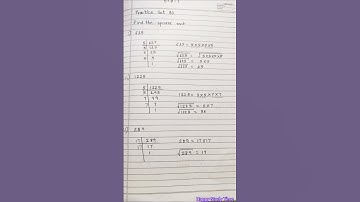 Practice Set 30
Find the square root
1) 625
5 | 625
5 | 125
5 | 25
5 | 5
1
625 = 5x5x5x5
√625 = √5x5x5x5
√625 = 5x5
√625 = 25
1225
5 | 1225
5 | 245
7 | 49
7 | 7
1
1225 = 5x5x7x7
√1225 = 5x7
√1225 = 35
289
17 | 289
17 | 17
1
289 = 17x17
√289 = 17